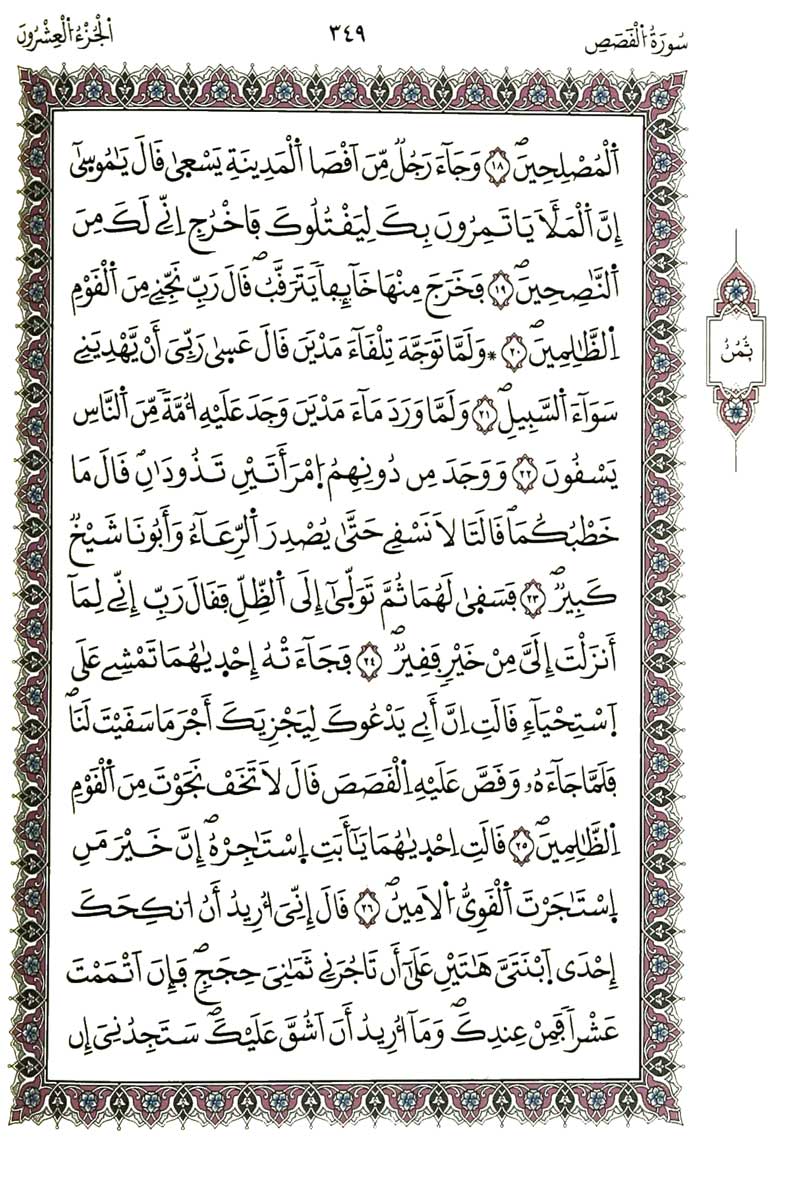 سُورَةُ اُلْقَصَصِ
٣٤٩
اَلْجُزْءُ اُلْعِشْرُونَ
اَلْمُصْلِحِينَۖ ١٨ وَجَآءَ رَجُلٞ مِّنَ اَقْصَا اَلْمَدِينَةِ يَسْعۭيٰ قَالَ يَٰمُوسۭيٰٓ
إِنَّ اَلْمَلَأَ يَاتَمِرُونَ بِكَ لِيَقْتُلُوكَ فَاخْرُجِ اِنِّے لَكَ مِنَ
اَلنَّٰصِحِينَۖ ١٩ فَخَرَجَ مِنْهَا خَآئِفاٗ يَتَرَقَّبُۖ قَالَ رَبِّ نَجِّنِے مِنَ اَلْقَوْمِ
اِلظَّٰلِمِينَۖ ٢٠ ۞ وَلَمَّا تَوَجَّهَ تِلْقَآءَ مَدْيَنَ قَالَ عَسۭيٰ رَبِّيَ أَنْ يَّهْدِيَنِے
سَوَآءَ اَلسَّبِيلِۖ ٢١ وَلَمَّا وَرَدَ مَآءَ مَدْيَنَ وَجَدَ عَلَيْهِ أُمَّةٗ مِّنَ اَلنَّاسِ
يَسْقُونَ ٢٢ وَوَجَدَ مِن دُونِهِمُ اِمْرَأَتَيْنِ تَذُودَٰنِۖ قَالَ مَا
خَطْبُكُمَاۖ قَالَتَا لَا نَسْقِے حَتَّىٰ يُصْدِرَ اَلرِّعَآءُ وَأَبُونَا شَيْخٞ
كَبِيرٞۖ ٢٣ فَسَقۭيٰ لَهُمَا ثُمَّ تَوَلّۭيٰٓ إِلَى اَلظِّلِّ فَقَالَ رَبِّ إِنِّے لِمَآ
أَنزَلْتَ إِلَيَّ مِنْ خَيْرٖ فَقِيرٞۖ ٢٤ فَجَآءَتْهُ إِحْدۭيٰهُمَا تَمْشِے عَلَى
اَسْتِحْيَآءٖ قَالَتِ اِنَّ أَبِے يَدْعُوكَ لِيَجْزِيَكَ أَجْرَ مَا سَقَيْتَ لَنَاۖ
فَلَمَّا جَآءَهُۥ وَقَصَّ عَلَيْهِ اِلْقَصَصَ قَالَ لَا تَخَفْ نَجَوْتَ مِنَ اَلْقَوْمِ
اِلظَّٰلِمِينَۖ ٢٥ قَالَتِ اِحْدۭيٰهُمَا يَٰٓأَبَتِ اِسْتَٰجِرْهُۖ إِنَّ خَيْرَ مَنِ
اِسْتَٰجَرْتَ اَلْقَوِيُّ اُلَامِينُۖ ٢٦ قَالَ إِنِّيَ أُرِيدُ أَنُ انكِحَكَ
إِحْدَى اَبْنَتَيَّ هَٰتَيْنِ عَلَىٰٓ أَن تَاجُرَنِے ثَمَٰنِيَ حِجَجٖۖ فَإِنَ اَتْمَمْتَ
عَشْراٗ فَمِنْ عِندِكَۖ وَمَآ أُرِيدُ أَنَ اَشُقَّ عَلَيْكَۖ سَتَجِدُنِيَ إِن
ثُمُنُ